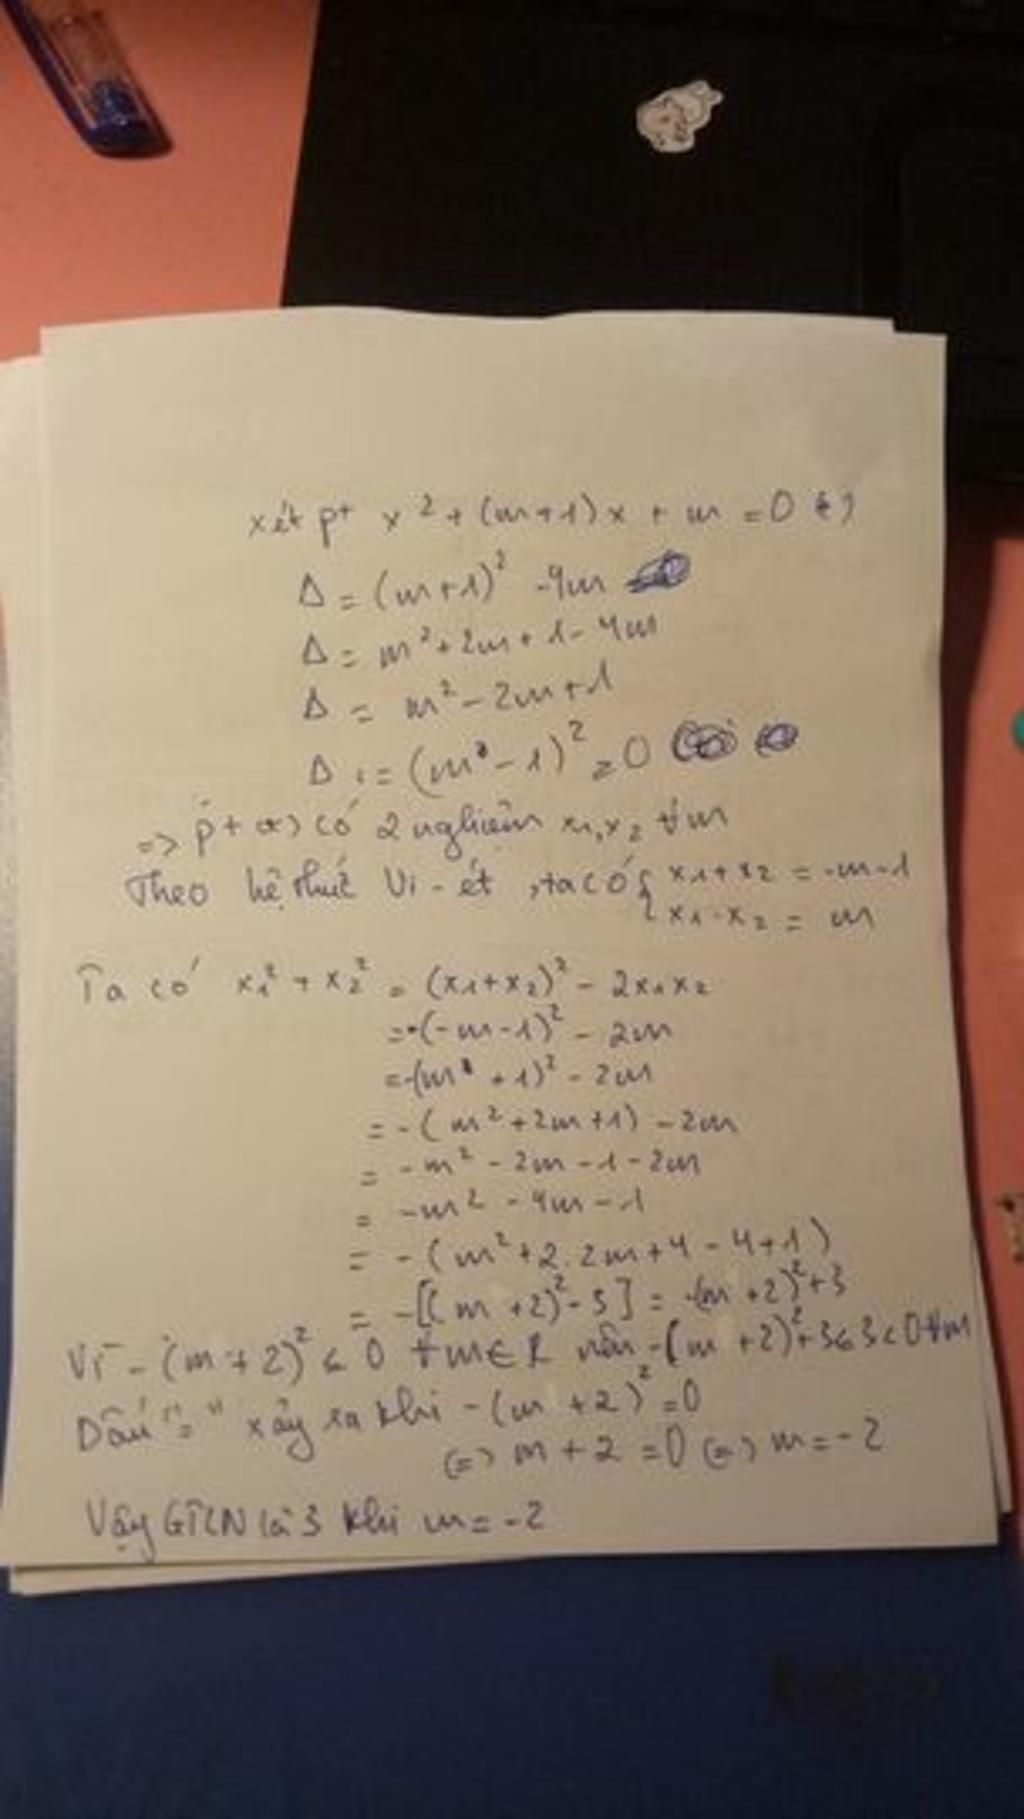 xét pt x² + (m+1)x + m = 0 (*)
Δ = (m+1)² - 4m
Δ = m² + 2m + 1 - 4m
Δ = m² - 2m + 1
Δ = (m - 1)² ≥ 0
=> pt (*) có 2 nghiệm x₁, x₂ ∀m
Theo hệ thức Vi-ét, ta có { x₁ + x₂ = -m - 1
x₁ . x₂ = m
Ta có x₁² + x₂² = (x₁+x₂)² - 2x₁x₂
= -(-m-1)² - 2m
= -(m + 1)² - 2m
= -(m² + 2m + 1) - 2m
= -m² - 2m - 1 - 2m
= -m² - 4m - 1
= -(m² + 2.2m + 4 - 4 + 1)
= -[(m + 2)² - 3] = -(m + 2)² + 3
Vì -(m + 2)² ≤ 0 ∀m∈R nên -(m + 2)² + 3 ≤ 3 < 0 ∀m
Dấu "=" xảy ra khi -(m + 2)² = 0
(=) m + 2 = 0 (=) m = -2
Vậy GTLN là 3 khi m = -2